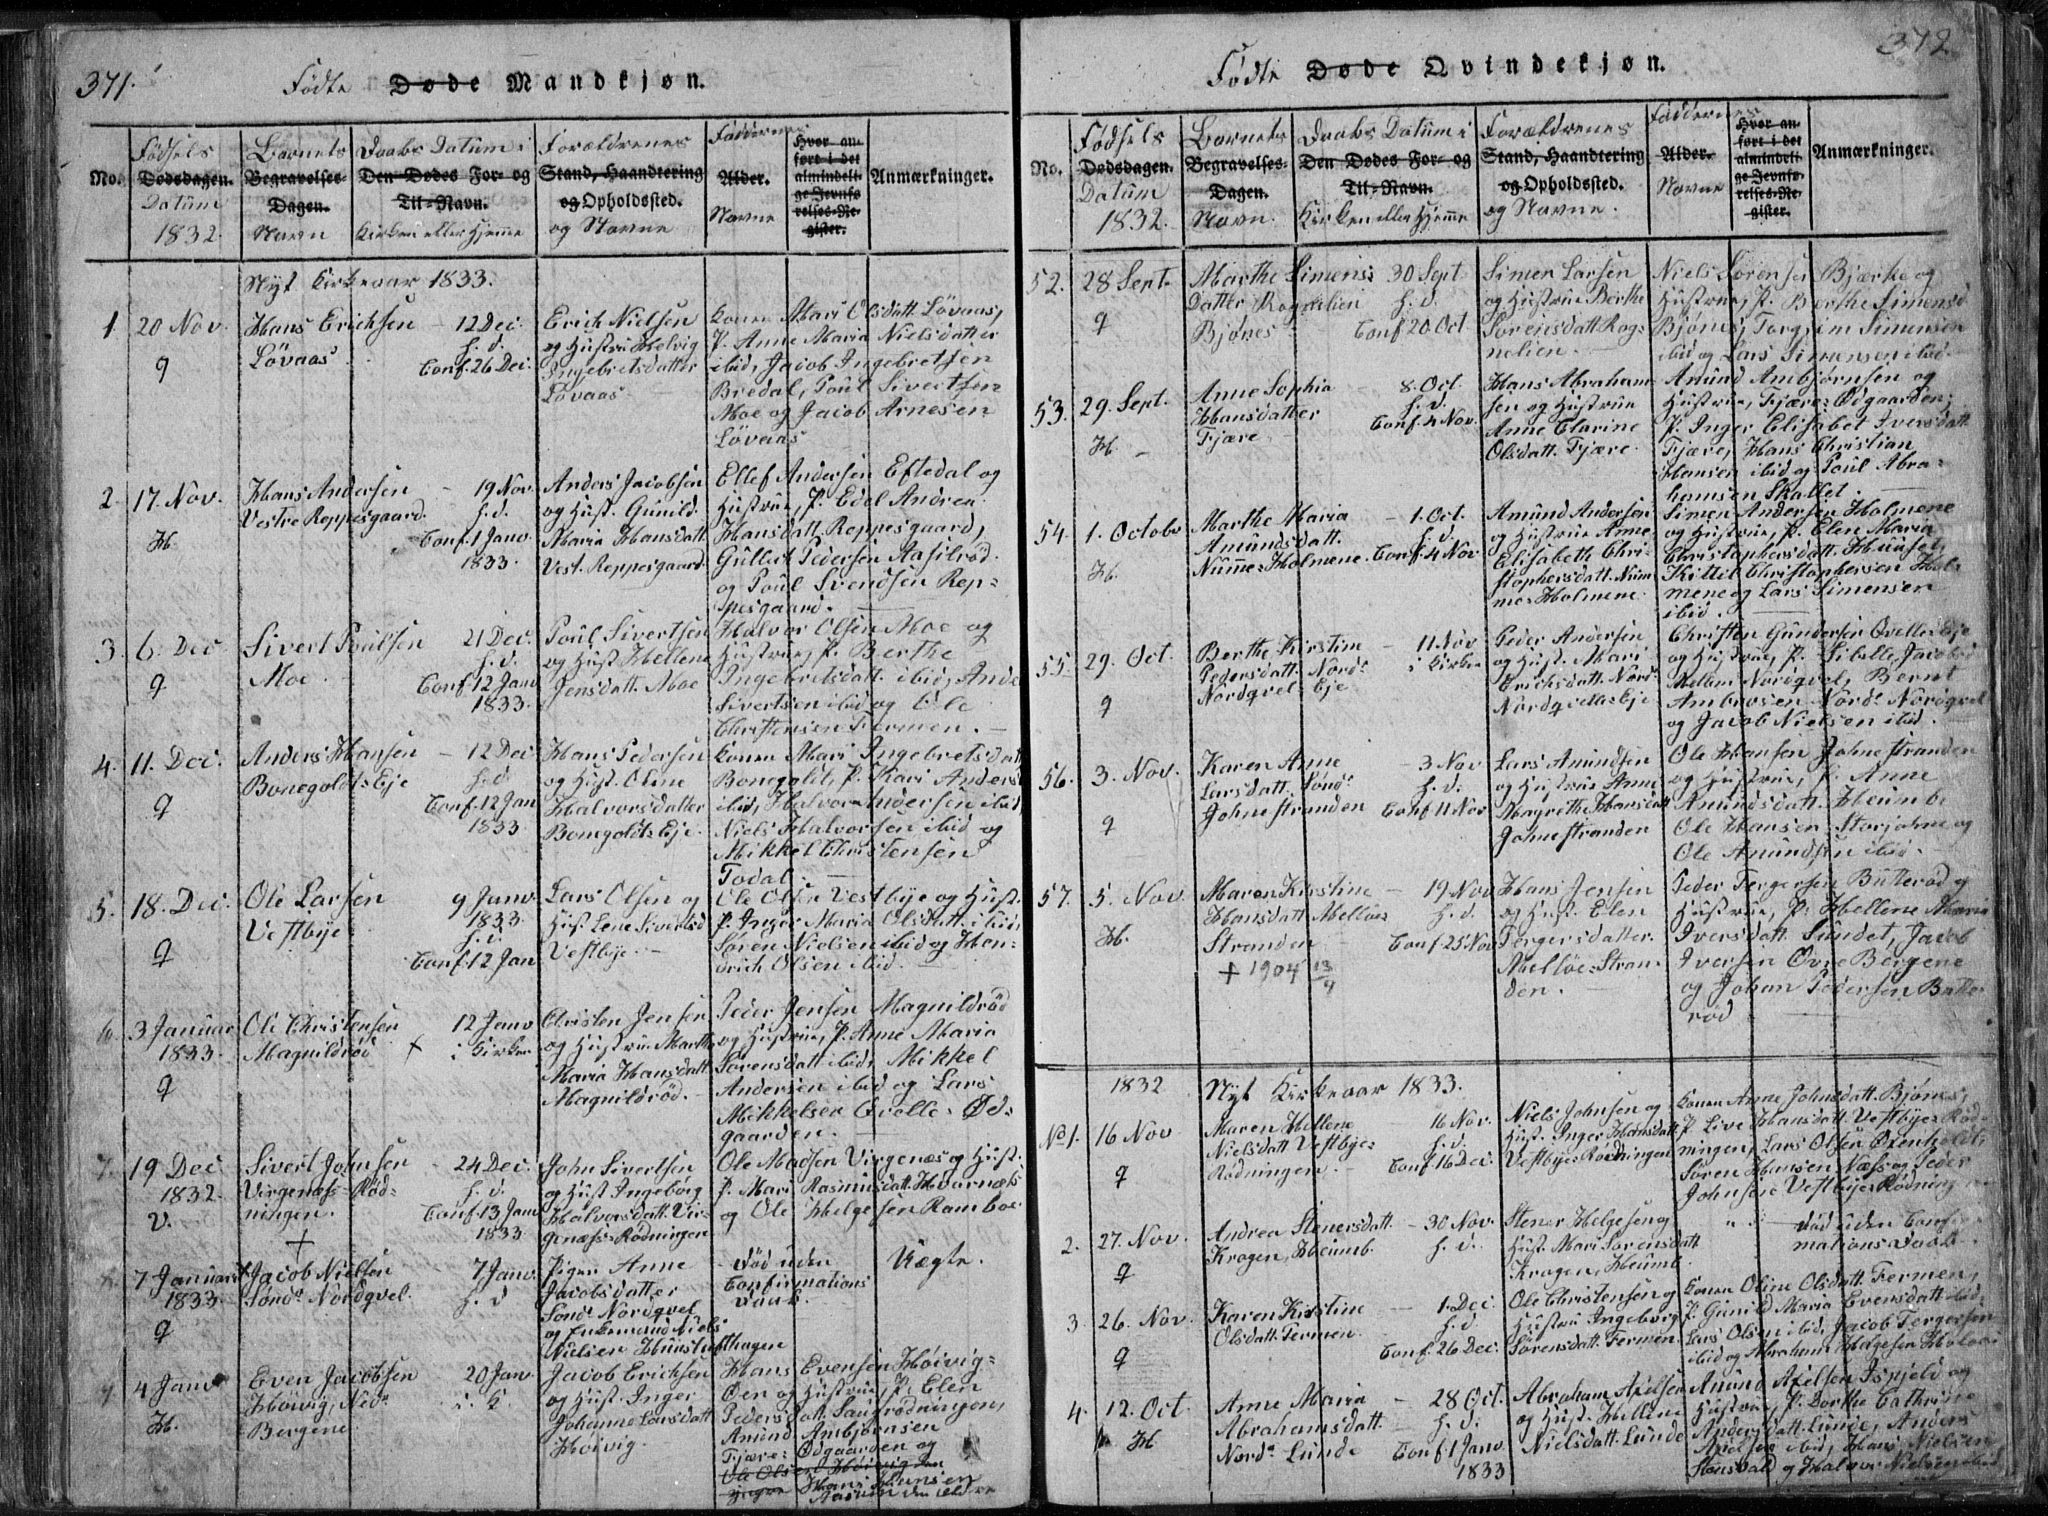 371.
Födte Døde Mandkjøn.
No.
Födsels Dødsdagen. Datum 1832.
Barnets Begravelses-Dagen. Navn
Daabs Datum i Den Dødes For- og Til-Navn. Kirken eller Hjemme
Forældrenes Stand, Haandtering og Opholdssted. og Navne
Faddernes Alder. Navne
Hvor anført i det almindelige Jevnførelses-Register.
Anmærkninger.
Nyt Kirkeaar 1833.
1. 20 Nov.
q
Hans Erichsen
Lövaas
12 Dec.
h. d.
Conf. 26 Dec.
Erich Nielsen
og Hustru Helvig
Ingebretsdatter
Lövaas
Konen Mari Olsdatt. Lövaas,
P. Anne Maria Nielsdatter
ibid, Jacob Ingebretsen
Bredal, Poul Sivertsen
Moe og Jacob Arnesen
Lövaas
2. 17. Nov.
H.
Hans Andersen
Vestre Reppesgaard.
19 Nov.
h. d.
Conf. 1 Janv.
1833.
Anders Jacobsen
og Hust. Gunild
Maria Hansdatt.
Vest. Reppesgaard.
Ellef Andersen Eftedal og
Hustrue, P. Edel Andrea
Hansdatt. Reppesgaard,
Gullerk Pedersen Aasilröd
og Poul Svendsen Rep-
pesgaard.
3. 6. Dec
q
Sivert Poulsen
Moe
21 Dec.
h. d.
Conf. 12 Janv
1833.
Poul Sivertsen
og Hust Hellene
Jensdatt. Moe
Halvor Olsen Moe og
Hustrue, P. Berthe
Ingebretsdatt. ibid, Ande
Sivertsen ibid og Ole
Christensen Fermen.
4. 11. Dec.
q
Anders Hansen
Bonegoldts Eje
12 Dec
h. d
Conf. 12 Jan
1833
Hans Pedersen
og Hust. Oline
Halvorsdatter
Bonegoldts Eje.
Konen Mari Ingebretsdatt
Bonegoldt, P. Kari Andersd
ibid, Halvor Andersen ibid,
Niels Halvorsen ibid og
Mikkel Christensen
Todal.
5. 18. Dec.
q
Ole Larsen
Vestbye
9 Janv.
1833.
h. d.
Conf. 12 Jan
Lars Olsen og
Hus. Lene Sivertsd
Vestbye.
Ole Olsen Vestbye og Hust.
P. Inger Maria Olsdatt. ibid,
Sören Nielsen ibid og Hen-
drich Olsen ibid.
6. 3 Januar
1833.
q
Ole Christensen
Magnildröd
+
12 Janv
i Kirken
Christen Jensen
og Hustrue Marthe
Maria Hansdatt
Magnildröd.
Peder Jensen Magnildröd
og Hustrue, P. Anne Maria
Sorensdatt ibid, Mikkel
Andersen ibid og Lars
Mikkelsen Qvelle-Öd-
gaarden.
7. 19 Dec
1832.
V.
Sivert Johnsen
Virgenæs-Röd-
ningen.
24 Dec.
h. d.
Conf. 13 Janv
1833.
John Sivertsen
og Hust Ingeborg
Halvorsdatt. Vir-
genæs-Rödningen
Ole Madsen Virgenæs og Hust.
P. Mari Rasmusdatt. Hvarnæs
og Ole Helgesen Ramboe
+
8. 7 Januar
1833
q
Jacob Nielsen
Sönd. Nordqvel.
7 Janv.
h. d
Pigen Anne
Jacobsdatter
Sönd. Nordqvel
og Enkemand Niels
Nielsen Hunsteshagen
död uden
Confirmations
Daab.
Uægte.
9. 4 Janv
H.
Even Jacobsen
Höivig, Ned.
Bergene
20 Janv.
i K
Jacob Erichsen
og Hust. Inger
Johanne Larsdatt
Höivig.
Hans Evensen Höivig-
Öen og Hustrue, P. Elen
Pedersdatt. Saugrödningen,
Amund Ambjörnsen
Fjære-Ödgaarden og
Ole Olsen Höivig den
yngre Hans Hansen
Aasen den ældre
372
Födte Døde Qvindekjøn.
No.
Födsels Dødsdagen. Datum 1832.
Barnets Begravelses-Dagen. Navn.
Daabs Datum i Den Dødes For- og Til-Navn. Kirken eller Hjemme
Forældrenes Stand, Haandtering og Opholdssted. og Navne.
Faddernes Alder. Navne
Hvor anført i det almindelige Jevnførelses-Register.
Anmærkninger.
52. 28 Sept.
q
Marthe Simens
Datter Rognelien
Bjönes
30 Sept
h. d.
Conf 20 Oct
Simen Larsen
og Hustrue Berthe
Sorensdatt Rog-
nelien.
Niels Sorensen Bjærke og
Hustrue, P. Berthe Simensd
Bjönes, Torgrim Simensen
ibid og Lars Simensen ibid.
53. 29. Sept.
H.
Anne Sophia
Hansdatter
Fjære
8. Oct.
h. d.
Conf. 4 Nov.
Hans Abraham-
sen og Hustrue
Anne Clarine
Olsdatt. Fjære.
Amund Ambjörnsen og
Hustrue, Fjære-Ödgaarden,
P. Inger Elisabet Iversdatt.
Fjære, Hans Christian
Hansen ibid og Poul Abra-
hamsen Skallet.
54. 1. Octobr
H.
Marthe Maria
Amundsdatt.
Numme-Holmene.
1. Oct.
h. d.
Conf. 4 Nov
Amund Andersen
og Hustrue Anne
Elisabeth Chri-
stophersdatt. Num-
me-Holmene.
Simen Andersen Holmene
og Hustrue, P. Elen Maria
Christophersdatt. Huuset,
Kittil Christophersen Hol-
mene og Lars Simensen
ibid.
55. 29. Oct.
q
Berthe Kirstine
Pedersdatt. Nord.
Nordqvel Eje
11 Nov
i Kirken
Peder Andersen
og Hust. Mari
Erichsdatt. Nord.
Nordqvelle Eje
Christen Gundersen Qvelle Eje
og Hustrue, P. Sibelle Jacobsd
Mellem Nordqvel, Bernt
Ambrosen Nord. Nordqvel
og Jacob Nielsen ibid.
56. 3. Nov.
q
Karen Anne
Larsdatt. Sönd.
Johnestranden
3 Nov
h. d.
Conf 11 Nov
Lars Amundsen
og Hustrue Anne
Margrethe Hansdatt
Johnestranden
Ole Hansen Johnestranden
og Hustrue, P. Anne
Amundsdatt. Heumb.
Ole Hansen Storjohne og
Ole Amundsen ibid.
57. 5. Nov.
H.
Maren Kirstine
Hansdatt. Mellöe
Stranden
+ 1904 13/9
19 Nov
h. d.
Conf. 25 Nov
Hans Jensen
og Hust. Elen
Tergersdatter.
Mellöe-Stran-
den.
Peder Tergersen Butteröd og
Hustrue, P. Hellene Maria
Iversdatt. Sundet, Jacob
Iversen Övre Bergene
og Johan Pedersen Butte-
röd
1832 Nyt Kirkeaar 1833.
No 1. 16 Nov
q
Maren Hellene
Nielsdatt Vestbye-
Rödningen.
16 Nov.
h. d.
Conf. 16 Dec.
Niels Johnsen og
Hust. Inger Hansdatt.
Vestbye-Rödningen
Konen Anne Johnsdatt. Bjönes,
P. Live Hansdatt. Vestbye-Röd-
ningen, Lars Olsen Oxenholdt,
Sören Hansen Næss og Peder
Johnsen Vestbye-Rödningen
2. 27. Nov.
q
Andrea Stenersdatt.
Krogen, Heumb.
30 Nov.
h. d.
Stener Helgesen og
Hust. Mari Sörensdatt
Krogen, Heumb.
död uden Confir-
mations Daab.
3. 26. Nov.
q
Karen Kirstine
Olsdatt. Fermen.
1. Dec.
h. d.
Conf. 26 Dec.
Ole Christensen og
Hustrue Ingeborg
Sörensdatt. Fermen.
Konen Oline Olsdatt. Fermen,
P. Gunild Maria Eversdatt. ibid,
Lars Olsen ibid, Jacob Tergersen
ibid og Abraham Helgesen Holmen
4. 12. Oct.
H
Anne Maria
Abrahamsdatt.
Nord. Lunde
28 Oct.
h. d.
Conf. 1 Janv.
1833
Abraham Axelsen
og Hust. Hellene
Nielsdatt. Lunde
Amund Axelsen Ispjeld og
Hustrue, P. Dorthe Cathrine
Andersdatt. Lunde, Anders
Axelsen ibid, Hans Nielsen
Stensvold og Halvor Nielsen ibid